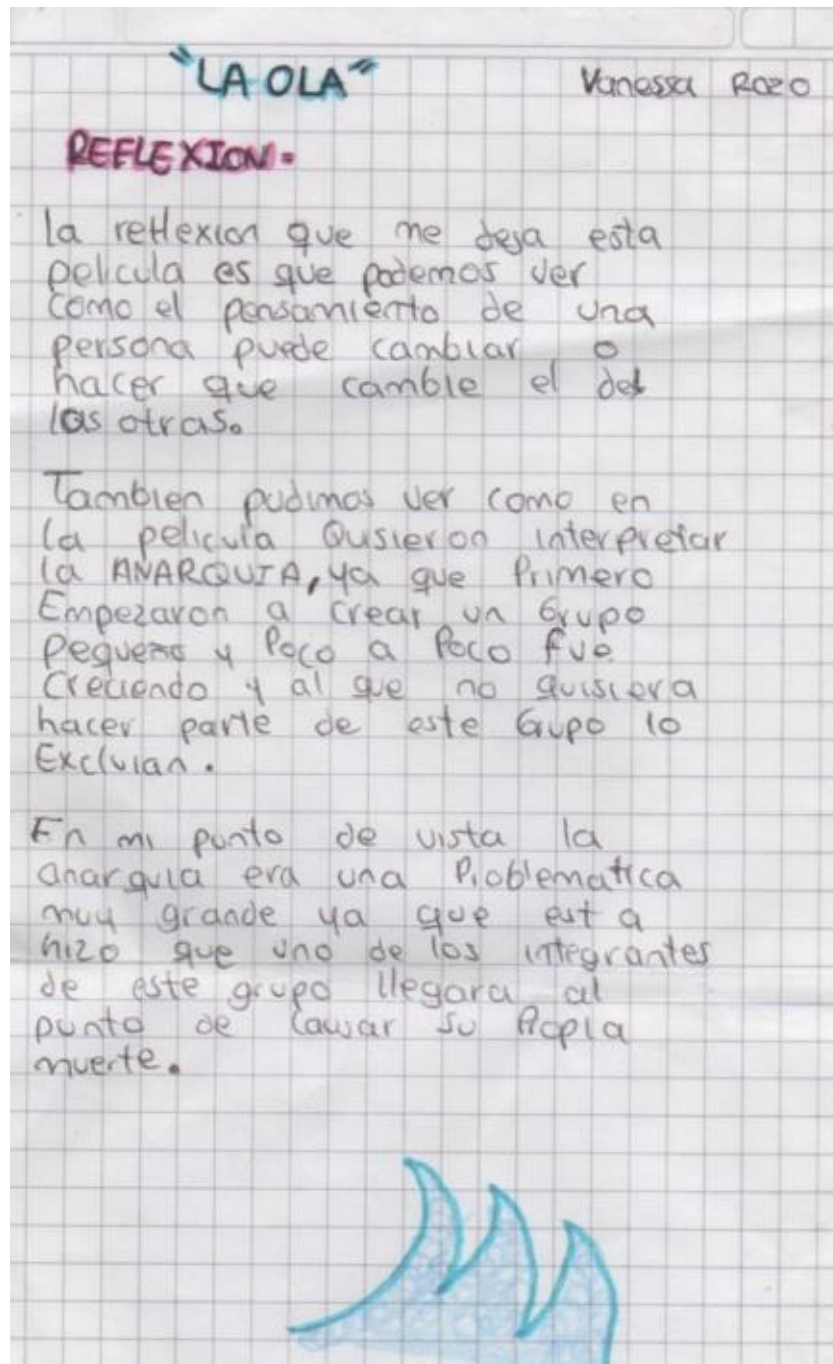 "LA OLA"
Vanessa Rozo
REFLEXION.
la reflexion que me deja esta
pelicula es que podemos ver
como el pensamiento de una
persona puede cambiar o
hacer que cambie el del
las otras.
Tambien pudimos ver como en
la pelicula Qusieron interpretar
la ANARQUIA, ya que Primero
Empezaron a crear un Grupo
Pequeño y Poco a Poco fue
Creciendo y al que no quisiera
hacer parte de este Gupo lo
Excluian.
En mi punto de vista la
anarquia era una Problematica
muy grande ya que est a
hizo que uno de los integrantes
de este grupo llegara al
punto de causar su Propia
muerte.